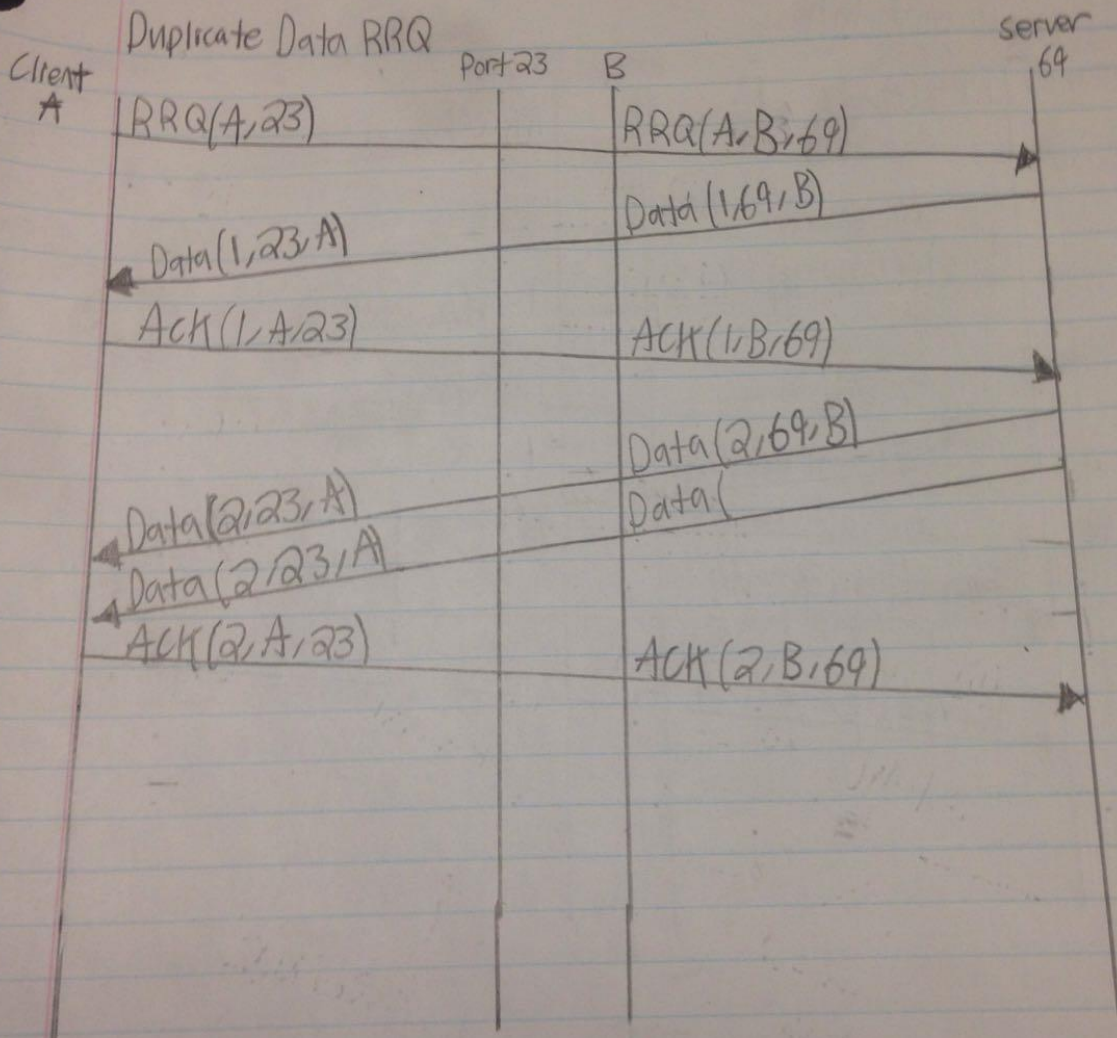 Duplicate Data RRQ
Client
A
Port 23
B
Server
69
RRQ(A,23)
RRQ(A,B,69)
Data(1,69,B)
Data(1,23,A)
ACK(1,A,23)
ACK(1,B,69)
Data(2,69,B)
Data(2,23,A)
Data(
Data(2,23,A)
ACK(2,A,23)
ACK(2,B,69)